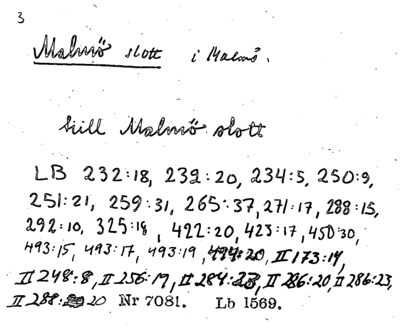 3
Malmö slott i Malmö.
till Malmö slott
LB 232:18, 232:20, 234:5, 250:9,
251:21, 259:31, 265:37, 271:17, 288:15,
292:10, 325:18, 422:20, 423:17, 450:30,
493:15, 493:17, 493:19, 494:20, II 173:14,
II 248:8, II 256:17, II 284:23, II 286:20, II 286:23,
II 288: 20 Nr 7081. Lb 1569.